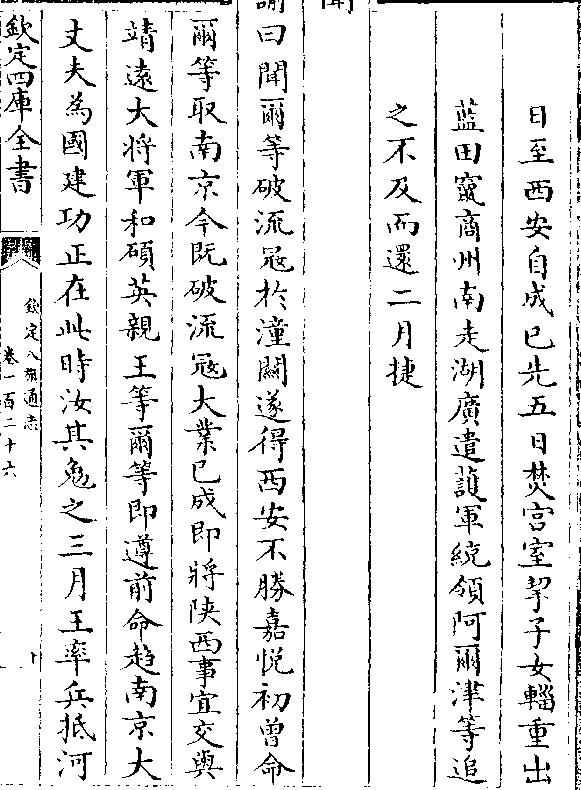 日至西安自成已先五日焚宮室挈子女輜重出
藍田竄商州南走湖廣遣護軍統領阿爾津等追
之不及而還二月捷
聞
諭曰聞爾等破流寇於潼關遂得西安不勝嘉悅初曾命
爾等取南京今既破流寇大業已成即將陝西事宜交與
靖遠大將軍和碩英親王等爾等即遵前命趨南京大
丈夫為國建功正在此時汝其勉之三月王率兵抵河
欽定四庫全書
欽定八旗通志
卷一百二十六